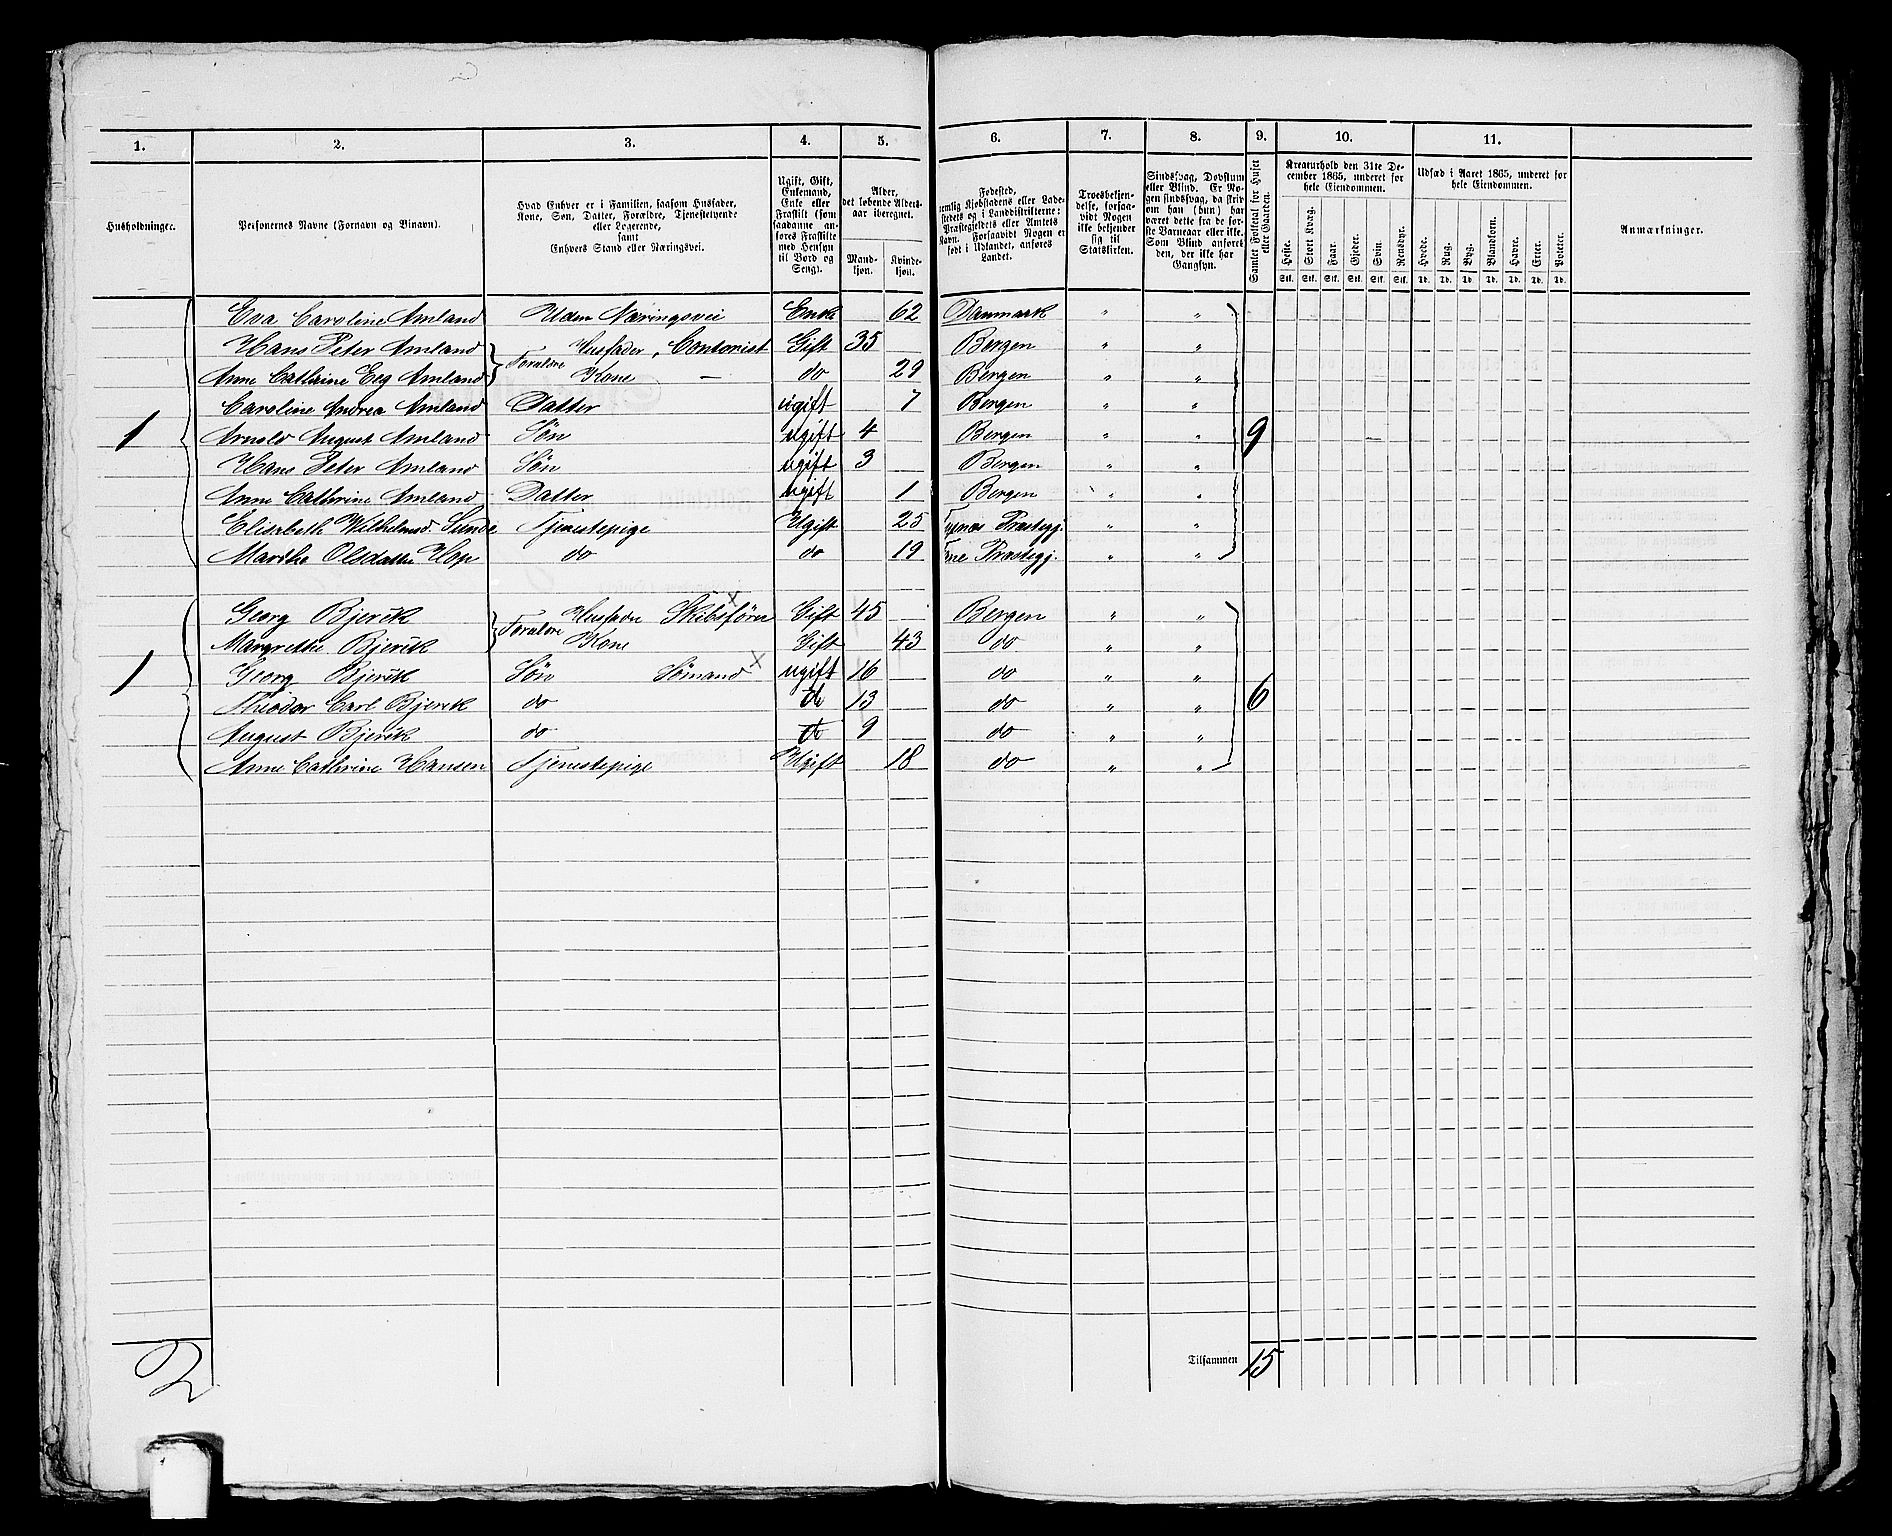 1. 2. 3. 4. 5. 6. 7. 8. 9. 10. 11.
Husholdninger.
Personernes Navne (Fornavn og Binavn).
Hvad Enhver er i Familien, saasom Husfader,
Kone, Søn, Datter, Forældre, Tjenestetyende
eller Logerende,
samt
Enhvers Stand eller Næringsvei.
Ugift, Gift,
Enkemand,
Enke eller
Fraskilt (som
saadanne an-
føres Fraskilte
med Hensyn
til Bord og
Seng).
Alder,
det løbende Alders-
aar iberegnet.
Mand-
kjøn.
Kvinde-
kjøn.
Fødested,
nemlig Kjøbstadens eller Lade-
stedets og i Landdistrikterne:
Præstegjeldets eller Amtets
Navn. Forsaavidt Nogen er
født i Udlandet, anføres
Landet.
Troesbekjen-
delse, forsaa-
vidt Nogen
ikke bekjender
sig til
Statskirken.
Sindssvag, Døvstum
eller Blind. Er No-
gen sindssvag, da skriv
om han (hun) har
været dette fra de før-
ste Barneaar eller ikke.
Som Blind anføres
den, der ikke har
Gangsyn.
Samlet Folketal for Huset
eller Gaarden.
Kreaturhold den 31te De-
cember 1865, underet for
hele Eiendommen.
Heste. Stort Kvæg. Faar. Gjeder. Svin. Rensdyr.
Stk. Stk. Stk. Stk. Stk. Stk.
Udsæd i Aaret 1865, underet for
hele Eiendommen.
Hvede. Rug. Byg. Blandkorn. Havre. Erter. Poteter.
Td. Td. Td. Td. Td. Td. Td.
Anmærkninger.
Eva Caroline Amland Uden Næringsvei Enke 62 Danmark " "
Hans Peter Amland Forældre Husfader, Contorist Gift 35 Bergen " "
Anne Cathrine Eeg Amland Kone — do 29 Bergen " "
Caroline Andrea Amland Datter ugift 7 Bergen " "
1 Arnold August Amland Søn ugift 4 Bergen " " 9
Hans Peter Amland Søn ugift 3 Bergen " "
Anne Cathrine Amland Datter ugift 1 Bergen " "
Elisabeth Wilhelmsd. Sunde Tjenestepige Ugift 25 Præstegj. " "
Marthe Olsdatter Hop do do 19 Præstegj. " "
Georg Bjerck Forældre Husfader Skibsfører Gift 45 Bergen " "
Margrethe Bjerck Kone Gift 43 do " "
1 Georg Bjerck Søn Sømand ugift 16 do " "
Theodor Carl Bjerck do d 13 do " " 6
August Bjerck do d 9 do " "
Anne Cathrine Hansen Tjenestepige Ugift 18 do " "
2 Tilsammen 15